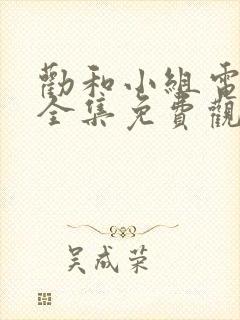 勸和小組電
全集免費觀
吴成荣